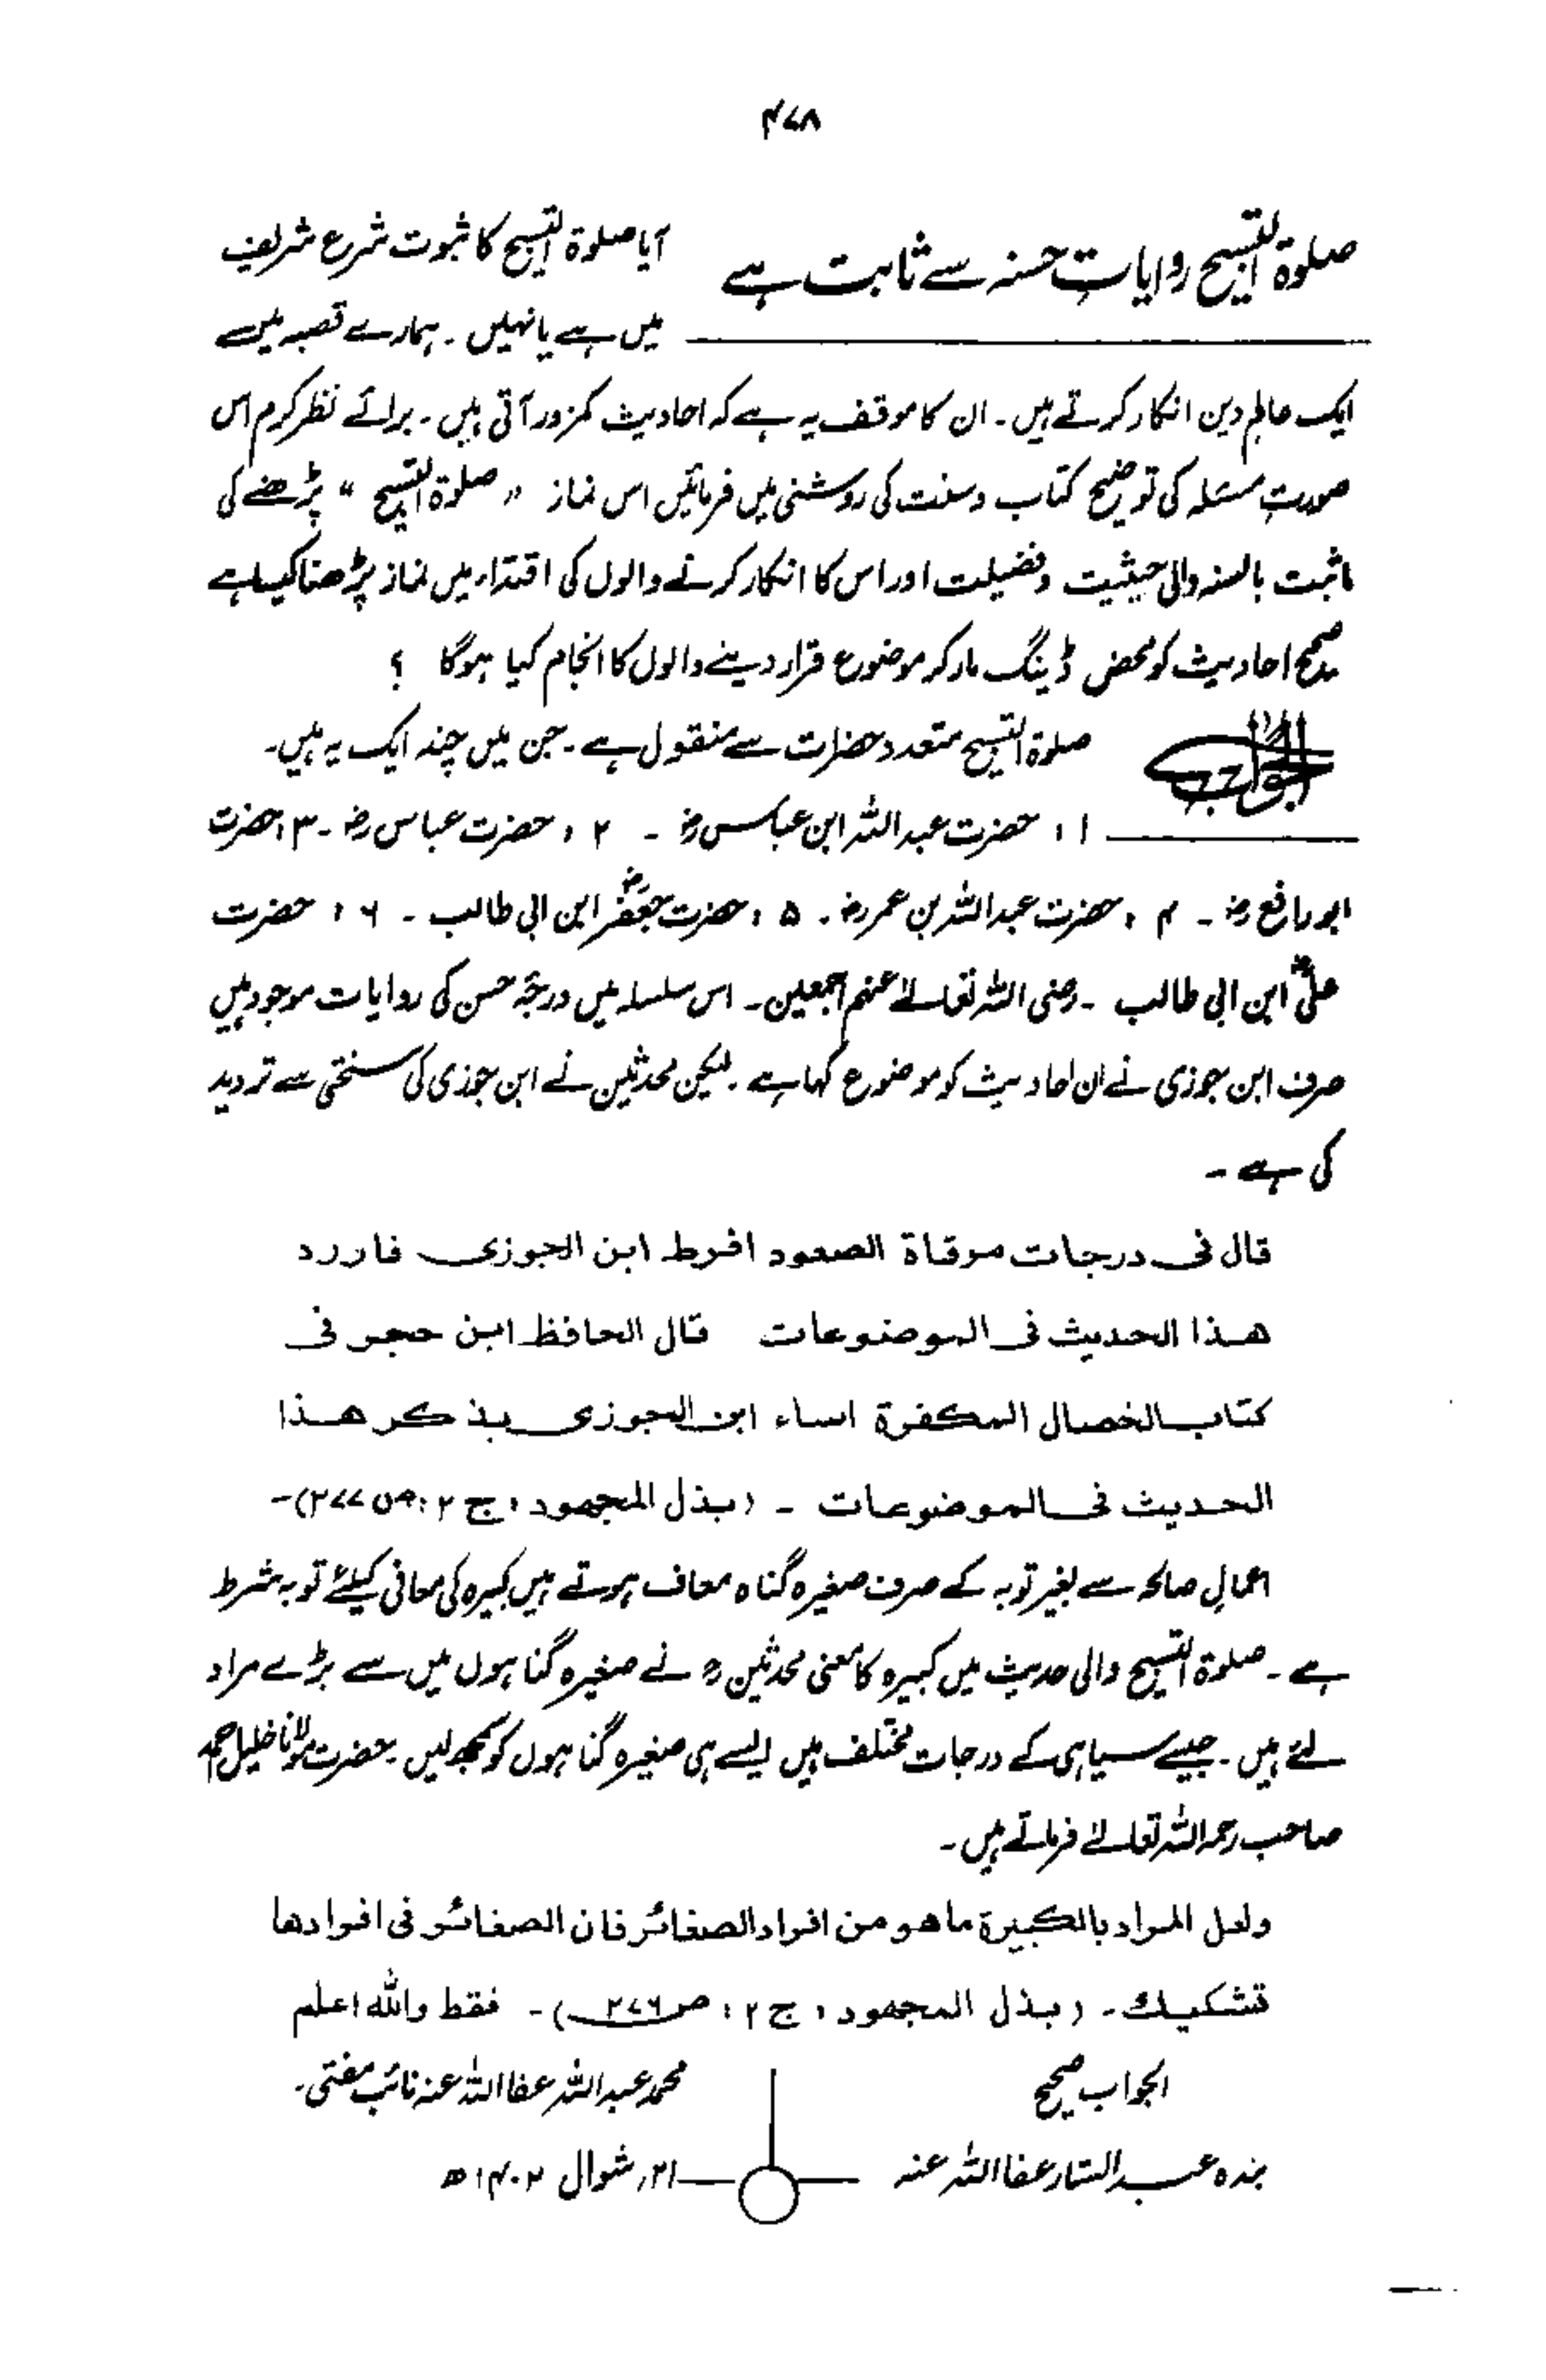 ۴۷۸
صلوۃ التسبیح روایاتِ حسنہ سے ثابت ہے
آیا صلوۃ التسبیح کا ثبوت شرع شریف
میں ہے یا نہیں ۔ ہمارے قصبہ میں
ایک عالمِ دین انکار کرتے ہیں ۔ ان کا موقف یہ ہے کہ احادیث کمزور آتی ہیں ۔ برائے نظرِ کرم اس
صورتِ مسئلہ کی توضیح کتاب و سنت کی روشنی میں فرمائیں اس نماز " صلوۃ التسبیح " پڑھنے کی
ماثبت بالسنہ والی حیثیت و فضیلت اور اس کا انکار کرنے والوں کی اقتداء میں نماز پڑھنا کیسا ہے
صحیح احادیث کو محض ڈینگ مار کر موضوع قرار دینے والوں کا انجام کیا ہوگا ؟
الجواب
صلوۃ التسبیح متعدد حضرات سے منقول ہے ۔ جن میں چند ایک یہ ہیں ۔
۱ ، حضرت عبداللہ ابن عباس رض ۔ ۲ ، حضرت عباس رض ۔ ۳ ، حضرت
ابو رافع رض ۔ ۴ ، حضرت عبداللہ بن عمر رض ۔ ۵ ، حضرت جعفر رض ابن ابی طالب ۔ ۶ ، حضرت
علی رض ابن ابی طالب ۔ رضی اللہ تعالےٰ عنہم اجمعین ۔ اس سلسلہ میں درجۂ حسن کی روایات موجود ہیں
صرف ابن جوزی نے ان احادیث کو موضوع کہا ہے ۔ لیکن محدثین نے ابن جوزی کی سختی سے تردید
کی ہے ۔
قال فی درجات مرقاة الصعود افرط ابن الجوزی فاورد
هذا الحديث فی الموضوعات قال الحافظ ابن حجر فی
کتاب الخصال المکفرة اساء ابن الجوزی بذکر هذا
الحدیث فی الموضوعات ۔ ( بذل المجهود ، ج ۲ : ص ۲۷۷ ) ۔
اعمالِ صالحہ سے بغیر توبہ کے صرف صغیرہ گناہ معاف ہوتے ہیں کبیرہ کی معافی کیلئے توبہ شرط
ہے ۔ صلوۃ التسبیح والی حدیث میں کبیرہ کا معنی محدثین رح نے صغیرہ گناہوں میں سے بڑے مراد
لئے ہیں ۔ جیسے سیاہی کے درجات مختلف ہیں ایسے ہی صغیرہ گناہوں کو سمجھ لیں ۔ حضرت مولانا خلیل احمد
صاحب رحمہ اللہ تعالےٰ فرماتے ہیں ۔
ولعل المراد بالکبیرة ما هو من افراد الصغائر فان الصغائر فی افرادها
تشکیك ۔ ( بذل المجهود ، ج ۲ : ص ۲۷۶ ) ۔ فقط واللہ اعلم
الجواب صحیح
محمد عبداللہ عفا اللہ عنہ نائب مفتی ۔
بندہ عبدالستار عفا اللہ عنہ
۲۱ر شوال ۱۴۰۲ھ